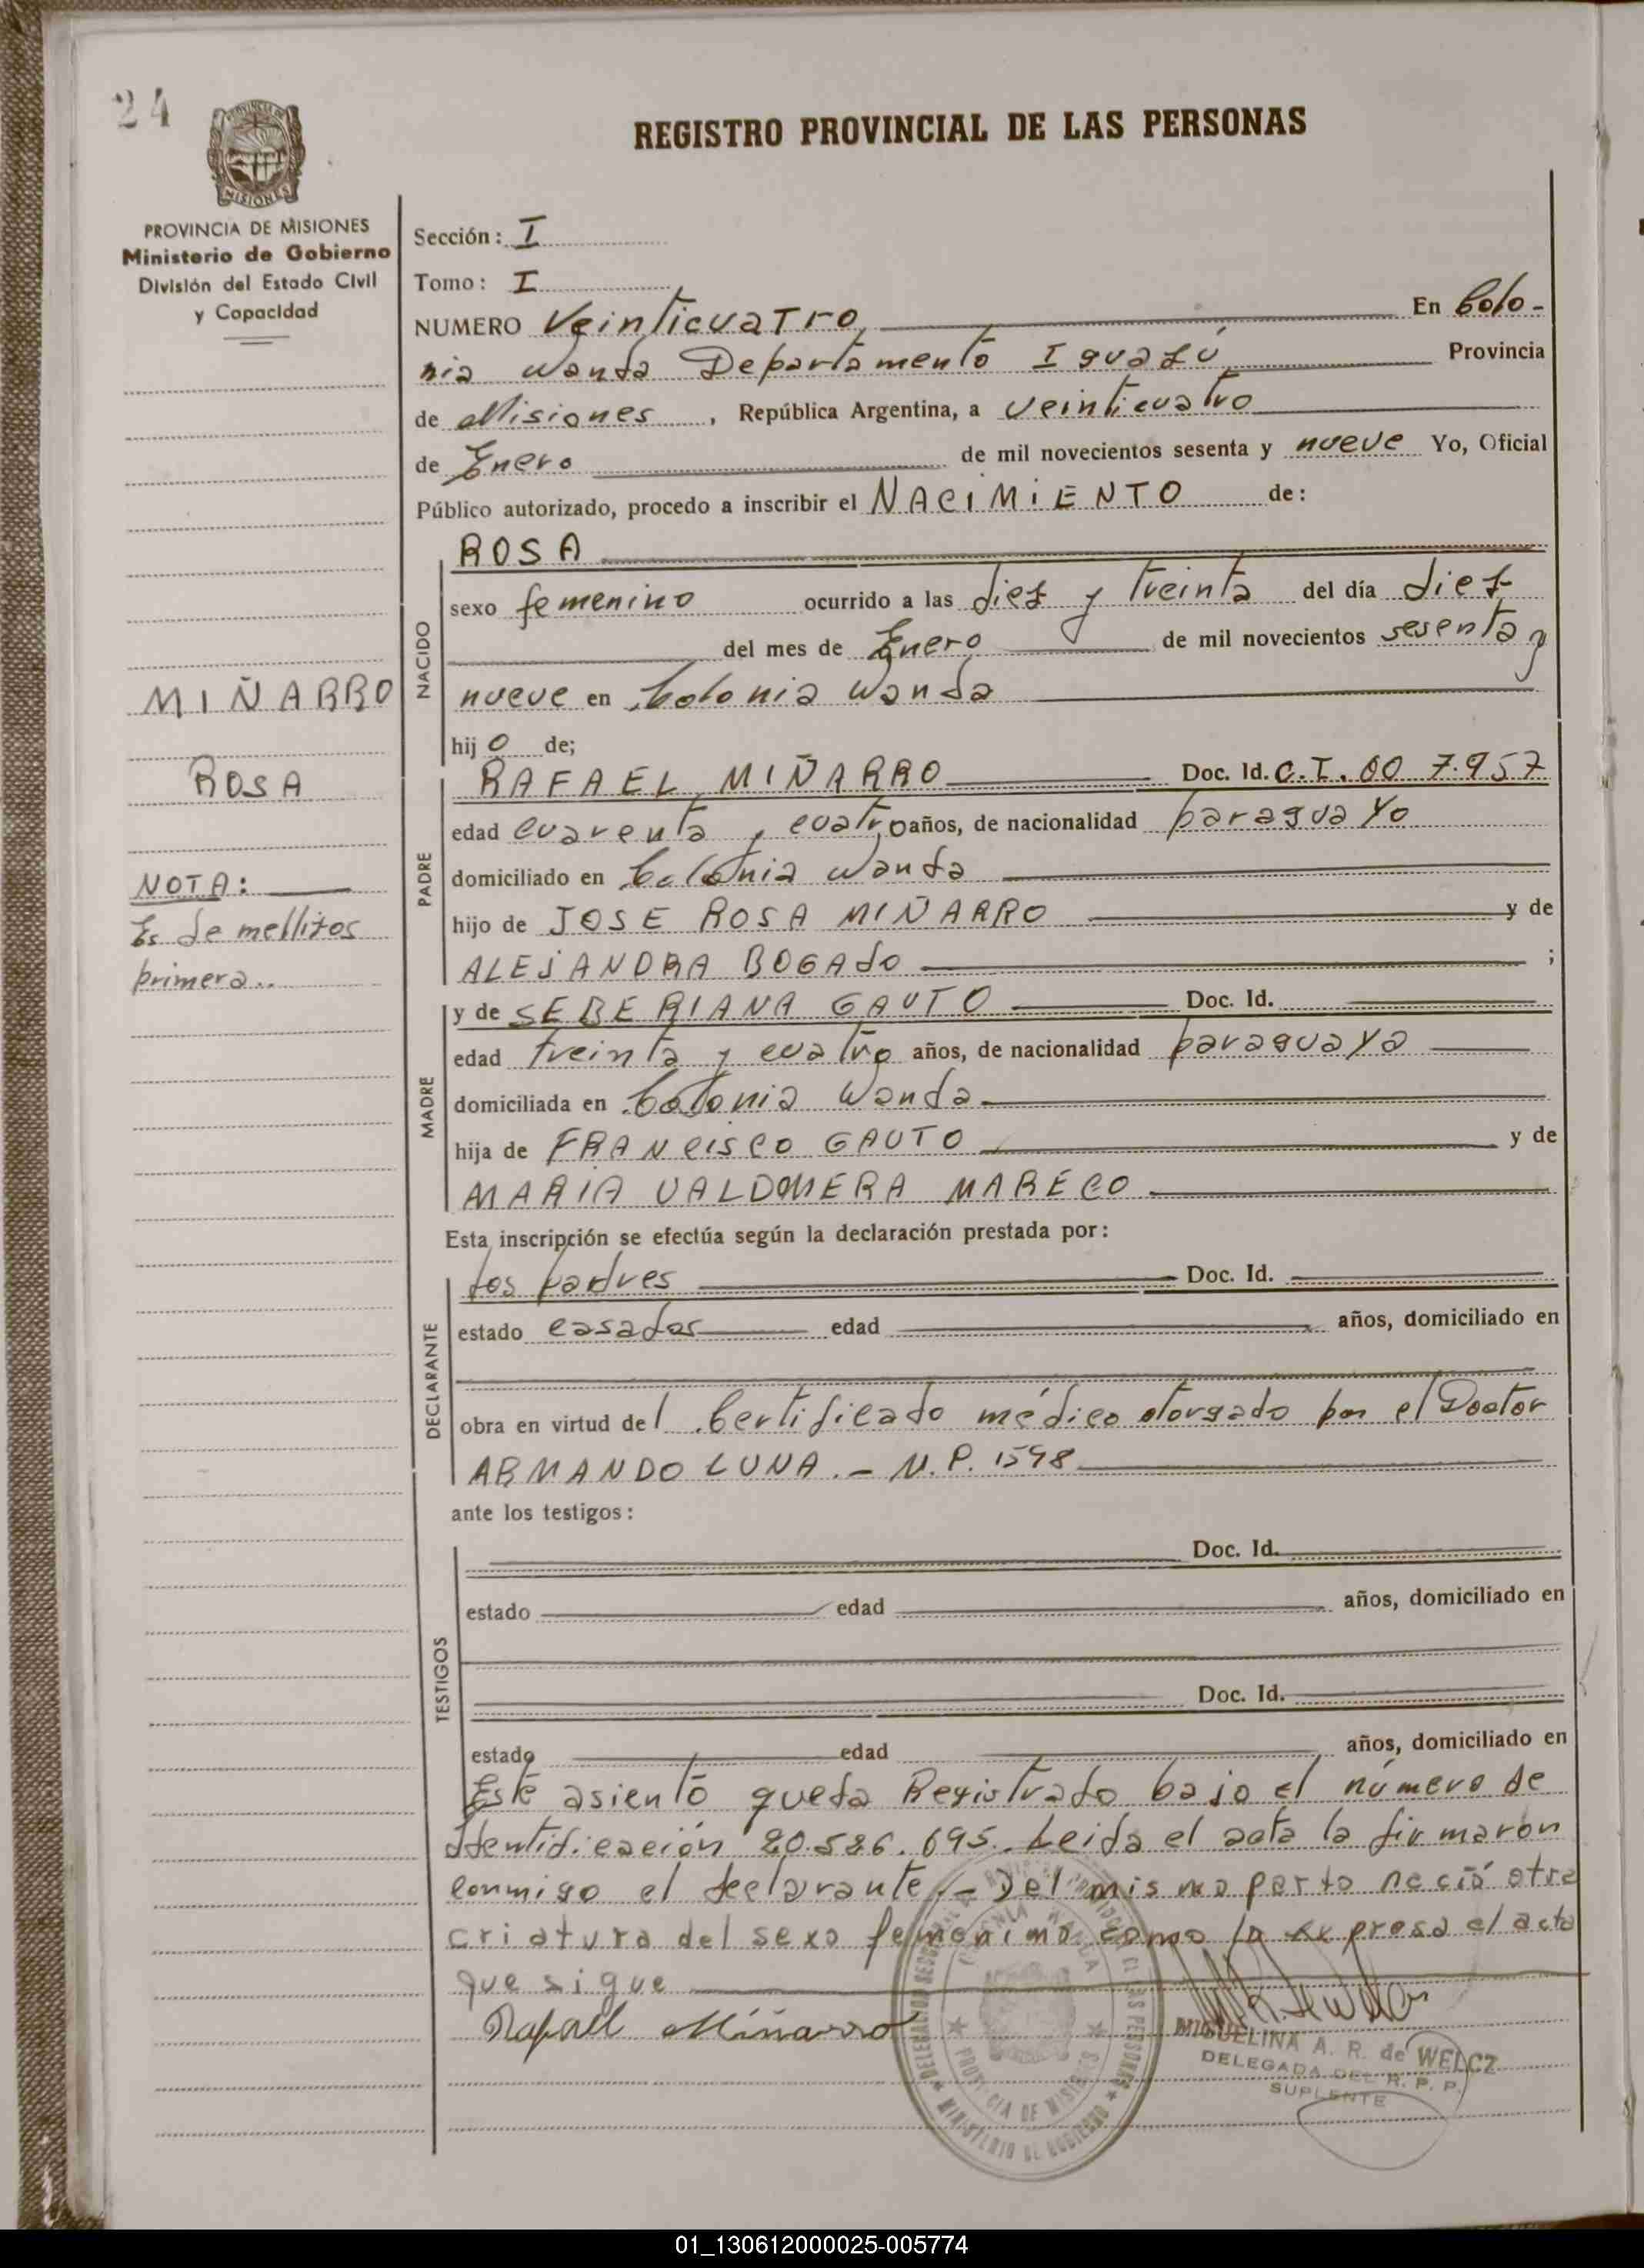 24
REGISTRO PROVINCIAL DE LAS PERSONAS
PROVINCIA DE MISIONES
Ministerio de Gobierno
División del Estado Civil
y Capacidad
Sección: I
Tomo: I
NUMERO Veinticuatro En Colo-
nia Wanda Departamento Iguazú Provincia
de Misiones, República Argentina, a veinticuatro
de Enero de mil novecientos sesenta y nueve Yo, Oficial
Público autorizado, procedo a inscribir el NACIMIENTO de:
NACIDO
ROSA
sexo femenino ocurrido a las diez y treinta del día diez
del mes de Enero de mil novecientos sesenta y
nueve en Colonia Wanda
hijo de;
MIÑARRO
ROSA
NOTA:
Es de mellizos
primera..
PADRE
RAFAEL MIÑARRO Doc. Id. C.I. 00 7.957
edad cuarenta y cuatro años, de nacionalidad paraguayo
domiciliado en Colonia Wanda
hijo de JOSE ROSA MIÑARRO y de
ALEJANDRA BOGAdO ;
MADRE
y de SEBERIANA GAUTO Doc. Id.
edad treinta y cuatro años, de nacionalidad paraguaya
domiciliada en Colonia Wanda
hija de FRANCISCO GAUTO y de
MARIA VALDOMERA MARECO
Esta inscripción se efectúa según la declaración prestada por:
DECLARANTE
los padres Doc. Id.
estado casados edad años, domiciliado en
obra en virtud del Certificado médico otorgado por el Doctor
ARMANDO LUNA.- M.P. 1598
ante los testigos:
TESTIGOS
Doc. Id.
estado edad años, domiciliado en
Doc. Id.
estado edad años, domiciliado en
Este asiento queda Registrado bajo el número de
Identificación 20.586.695. Leida el acta la firmaron
conmigo el declarante.- Del mismo parto nació otra
criatura del sexo femenino como lo expresa el acta
que sigue
Rafael Miñarro
MIGUELINA A. R. de WELCZ
DELEGADA DEL R. P. P.
SUPLENTE
PROVINCIA DE MISIONES
MINISTERIO DE GOBIERNO
01_130612000025-005774